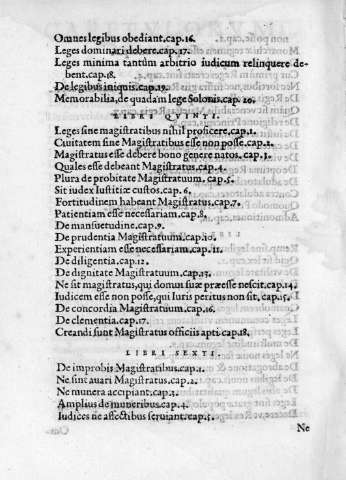 Omnes legibus obediant.cap.16.
Leges dominari debere.cap.17.
Leges minima tantūm arbitrio iudicum relinquere de-
bent.cap.18.
De legibus iniquis.cap.19.
Memorabilia, de quadam lege Solonis.cap. 20.
LIBRI QVINTI.
Leges sine magistratibus nihil proficere.cap.1.
Ciuitatem sine Magistratibus esse non posse.cap.2.
Magistratus esse debere bono genere natos.cap.3.
Quales esse debeant Magistratus.cap.4.
Plura de probitate Magistratuum.cap.5.
Sit iudex Iustitiæ custos.cap.6.
Fortitudinem habeant Magistratus.cap.7.
Patientiam esse necessariam.cap.8.
De mansuetudine.cap.9.
De prudentia Magistratuum.cap.10.
Experientiam esse necessariam.cap.11.
De diligentia.cap.12.
De dignitate Magistratuum.cap.13.
Ne sit magistratus, qui domui suæ præesse nescit.cap.14.
Iudicem esse non posse, qui Iuris peritus non sit.cap.15.
De concordia Magistratuum.cap.16.
De clementia.cap.17.
Creandi sunt Magistratus officiis apti.cap.18.
LIBRI SEXTI.
De improbis Magistratibus.cap.1.
Ne sint auari Magistratus.cap.2.
Ne munera accipiant.cap.3.
Amplius de muneribus.cap.4.
Iudices ne affectibus seruiant.cap.5.
Ne